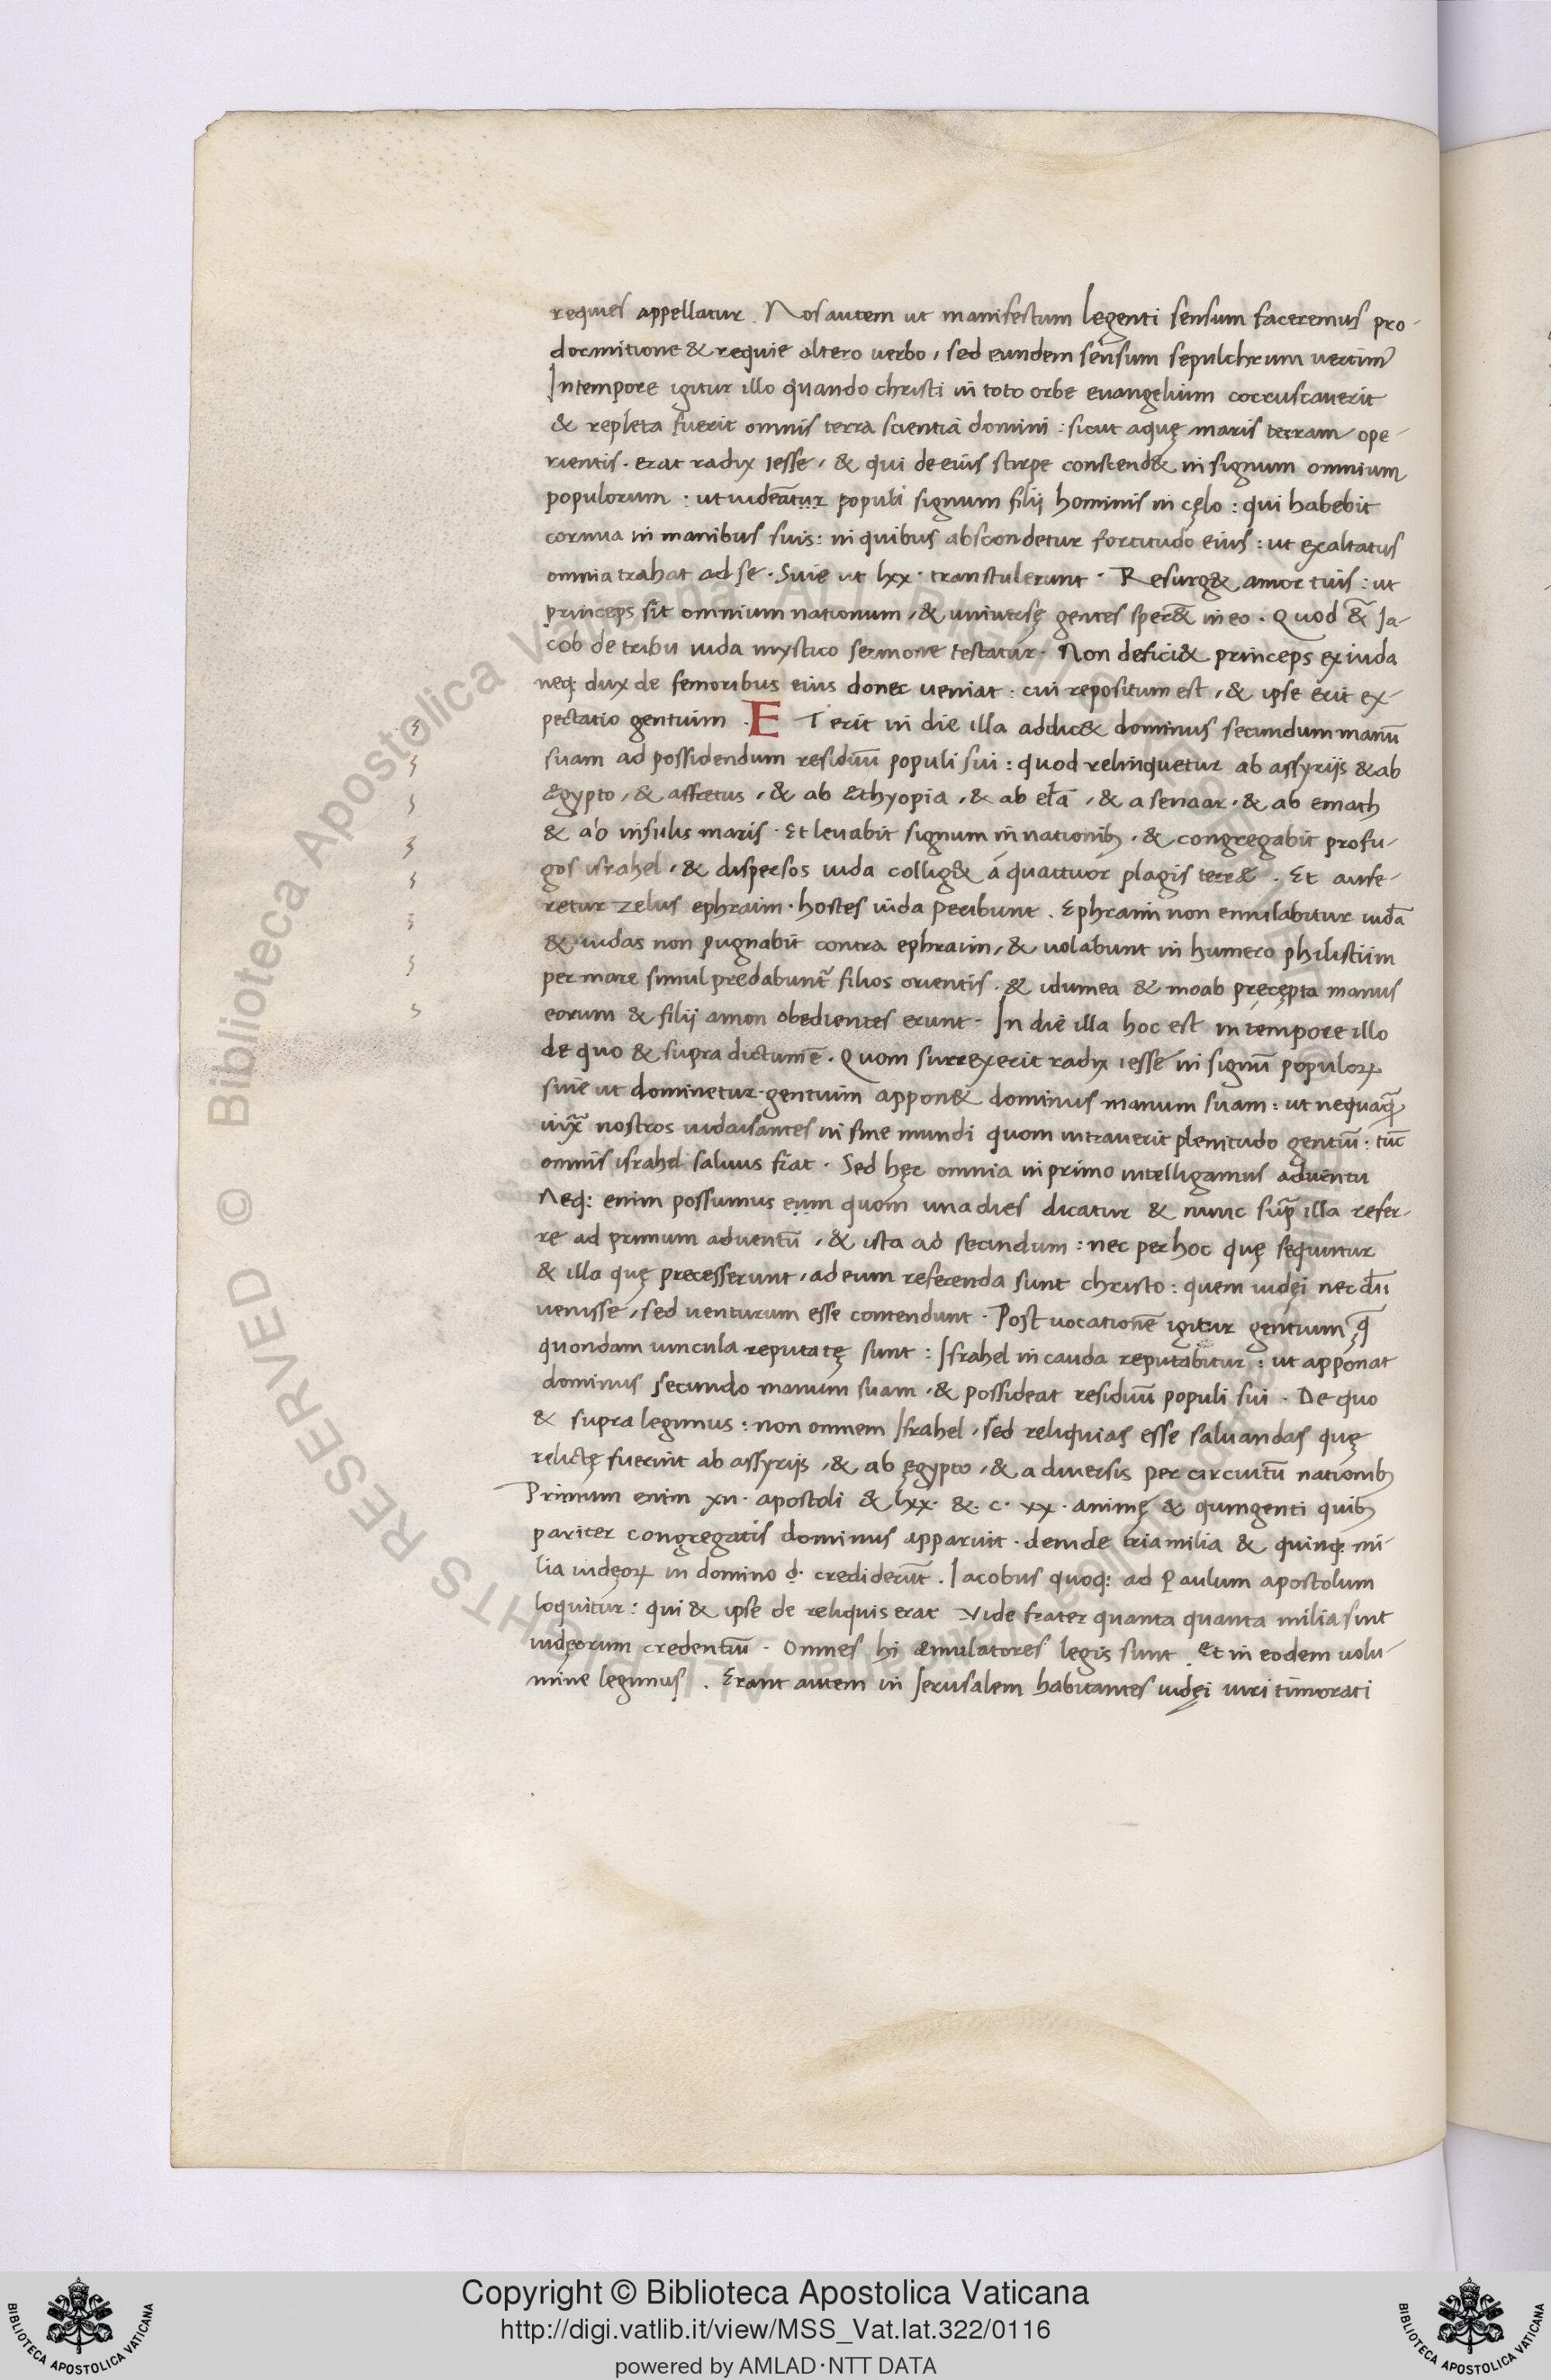 requies appellatur. Nos autem ut manifestum legenti sensum faceremus pro-
dormitione & requie altero uerbo, sed eundem sensum sepulchrum uertim᷒
In tempore igitur illo quando christi in toto orbe euangelium corruscauerit
& repleta fuerit omnis terra scientia domini: sicut aquę maris terram ope-
rientis. erat radix iesse, & qui de eius stirpe conscend& in signum omnium
populorum: ut uideātur populi signum filij hominis in cęlo: qui habebit
cornua in manibus suis: in quibus abscondetur fortitudo eius: ut exaltatus
omnia trahat ad se. Siue ut lxx. transtulerunt. Resurg& amor tuis: ut
princeps sit omnium nationum, & uniuersę gentes sper&̄ in eo. Quod &̄ Ja-
cob de tribu iuda mystico sermone testatur. Non defici& princeps ex iuda
neq: dux de femoribus eius donec ueniat: cui repositum est, & ipse erit ex-
pectatio gentuim. ET erit in die illa addic& dominus secundum manū
suam ad possidendum residuū populi sui: quod relinquetur ab assyrijs & ab
ęgypto, & affretus, & ab ęthyopia, & ab eła, & a senaar, & ab emath
& ab insulis maris. Et leuabit signum in nationib;, & congregabit profu-
gos israhel, & dispersos iuda collig& á quattuor plagis terrę. Et aufe-
retur zelus ephraim. hostes iuda peribunt. Ephraim non emulabitur iudā
& iudas non pugnabit contra ephraim, & uolabunt in humero philistiim
per mare simul predabunt̄ filios orientis. & idumea & moab precępta manus
eorum & filij amon obedientes erunt. In die illa hoc est in tempore illo
de quo & supra dictum ē. Quom surrexerit radix iesse in signū populoꝝ
siue ut dominetur gentuim appon& dominus manum suam: ut nequaq̄
iux̄ nostros iudaisantes in fine mundi quom intrauerit plenitudo gentiū: tūc
omnis israhel saluus fiat. Sed hęc omnia in primo intelligamus aduentu
Neq: enim possumus eum quom una dies dicatur & nunc sup̄ illa refer-
re ad primum aduentū, & ista ad secundum: nec per hoc quę sequuntur
& illa quę precesserunt, ad eum referenda sunt christo: quem iudęi nec dū
uenisse, sed uenturum esse contendunt. Post uocationē igitur gentium q̄
quondam uincula reputatę sunt: Israhel in cauda reputabitur: ut apponat
dominus secundo manum suam, & possideat residuū populi sui. De quo
& supra legimus: non omnem Israhel, sed reliquias esse saluandas quę
relictę fuerint ab assyrijs, & ab ęgypto, & a diuersis per circuitū nationib;
Primum enim xii. apostoli & lxx. &. c. xx. animę & quingenti quib;
pariter congregatis dominus apparuit. deinde tria milia & quinq: mi-
lia iudęoꝝ in domino d. crediderūt. Iacobus quoq: ad Paulum apostolum
loquitur: qui & ipse de reliquis erat Vide frater quanta quanta milia sint
iudęorum credentiū. Omnes hi ęmulatores legis sunt. Et in eodem uolu-
mine legimus. Erant autem in Jerusalem habitantes iudęi uiri timorati
Biblioteca Apostolica Vaticana ALL RIGHTS RESERVED ©
Copyright © Biblioteca Apostolica Vaticana
http://digi.vatlib.it/view/MSS_Vat.lat.322/0116
powered by AMLAD·NTT DATA
BIBLIOTECA APOSTOLICA VATICANA
BIBLIOTECA APOSTOLICA VATICANA